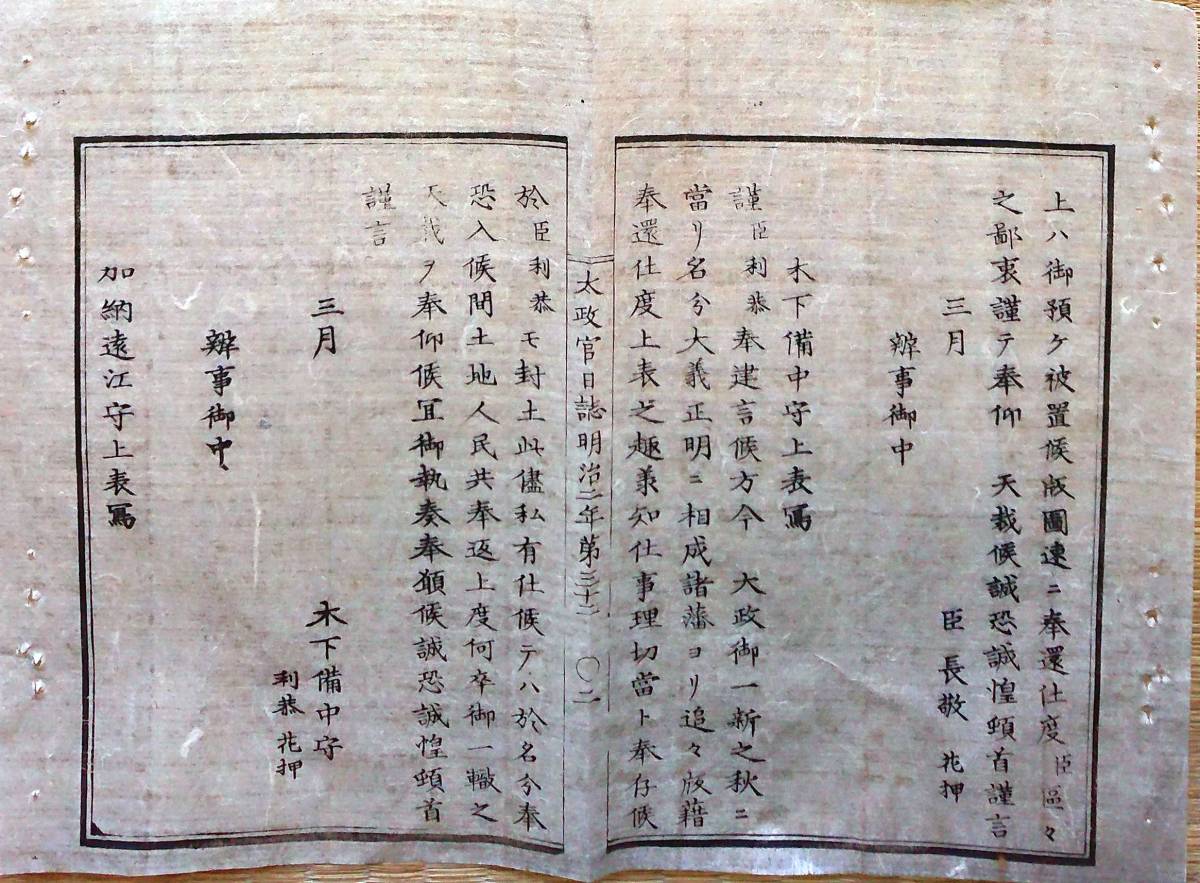 上ハ御預ケ被置候版圖速ニ奉還仕度臣區々
之鄙衷謹テ奉仰　天裁候誠恐誠惶頓首謹言
三月　臣　長敬　花押
辨事御中
木下備中守上表寫
謹臣利恭奉建言候方今　大政御一新之秋ニ
當リ名分大義正明ニ相成諸藩ヨリ追々版藉
奉還仕度上表之趣羕知仕事理切當ト奉存候
太政官日誌明治二年第三十二　〇二
於臣利恭モ封土此儘私有仕候テハ於名分奉
恐入候間土地人民共奉返上度何卒御一轍之
天裁ヲ奉仰候冝御執奏奉願候誠恐誠惶頓首
謹言
三月　木下備中守
利恭　花押
辨事御中
加納遠江守上表寫